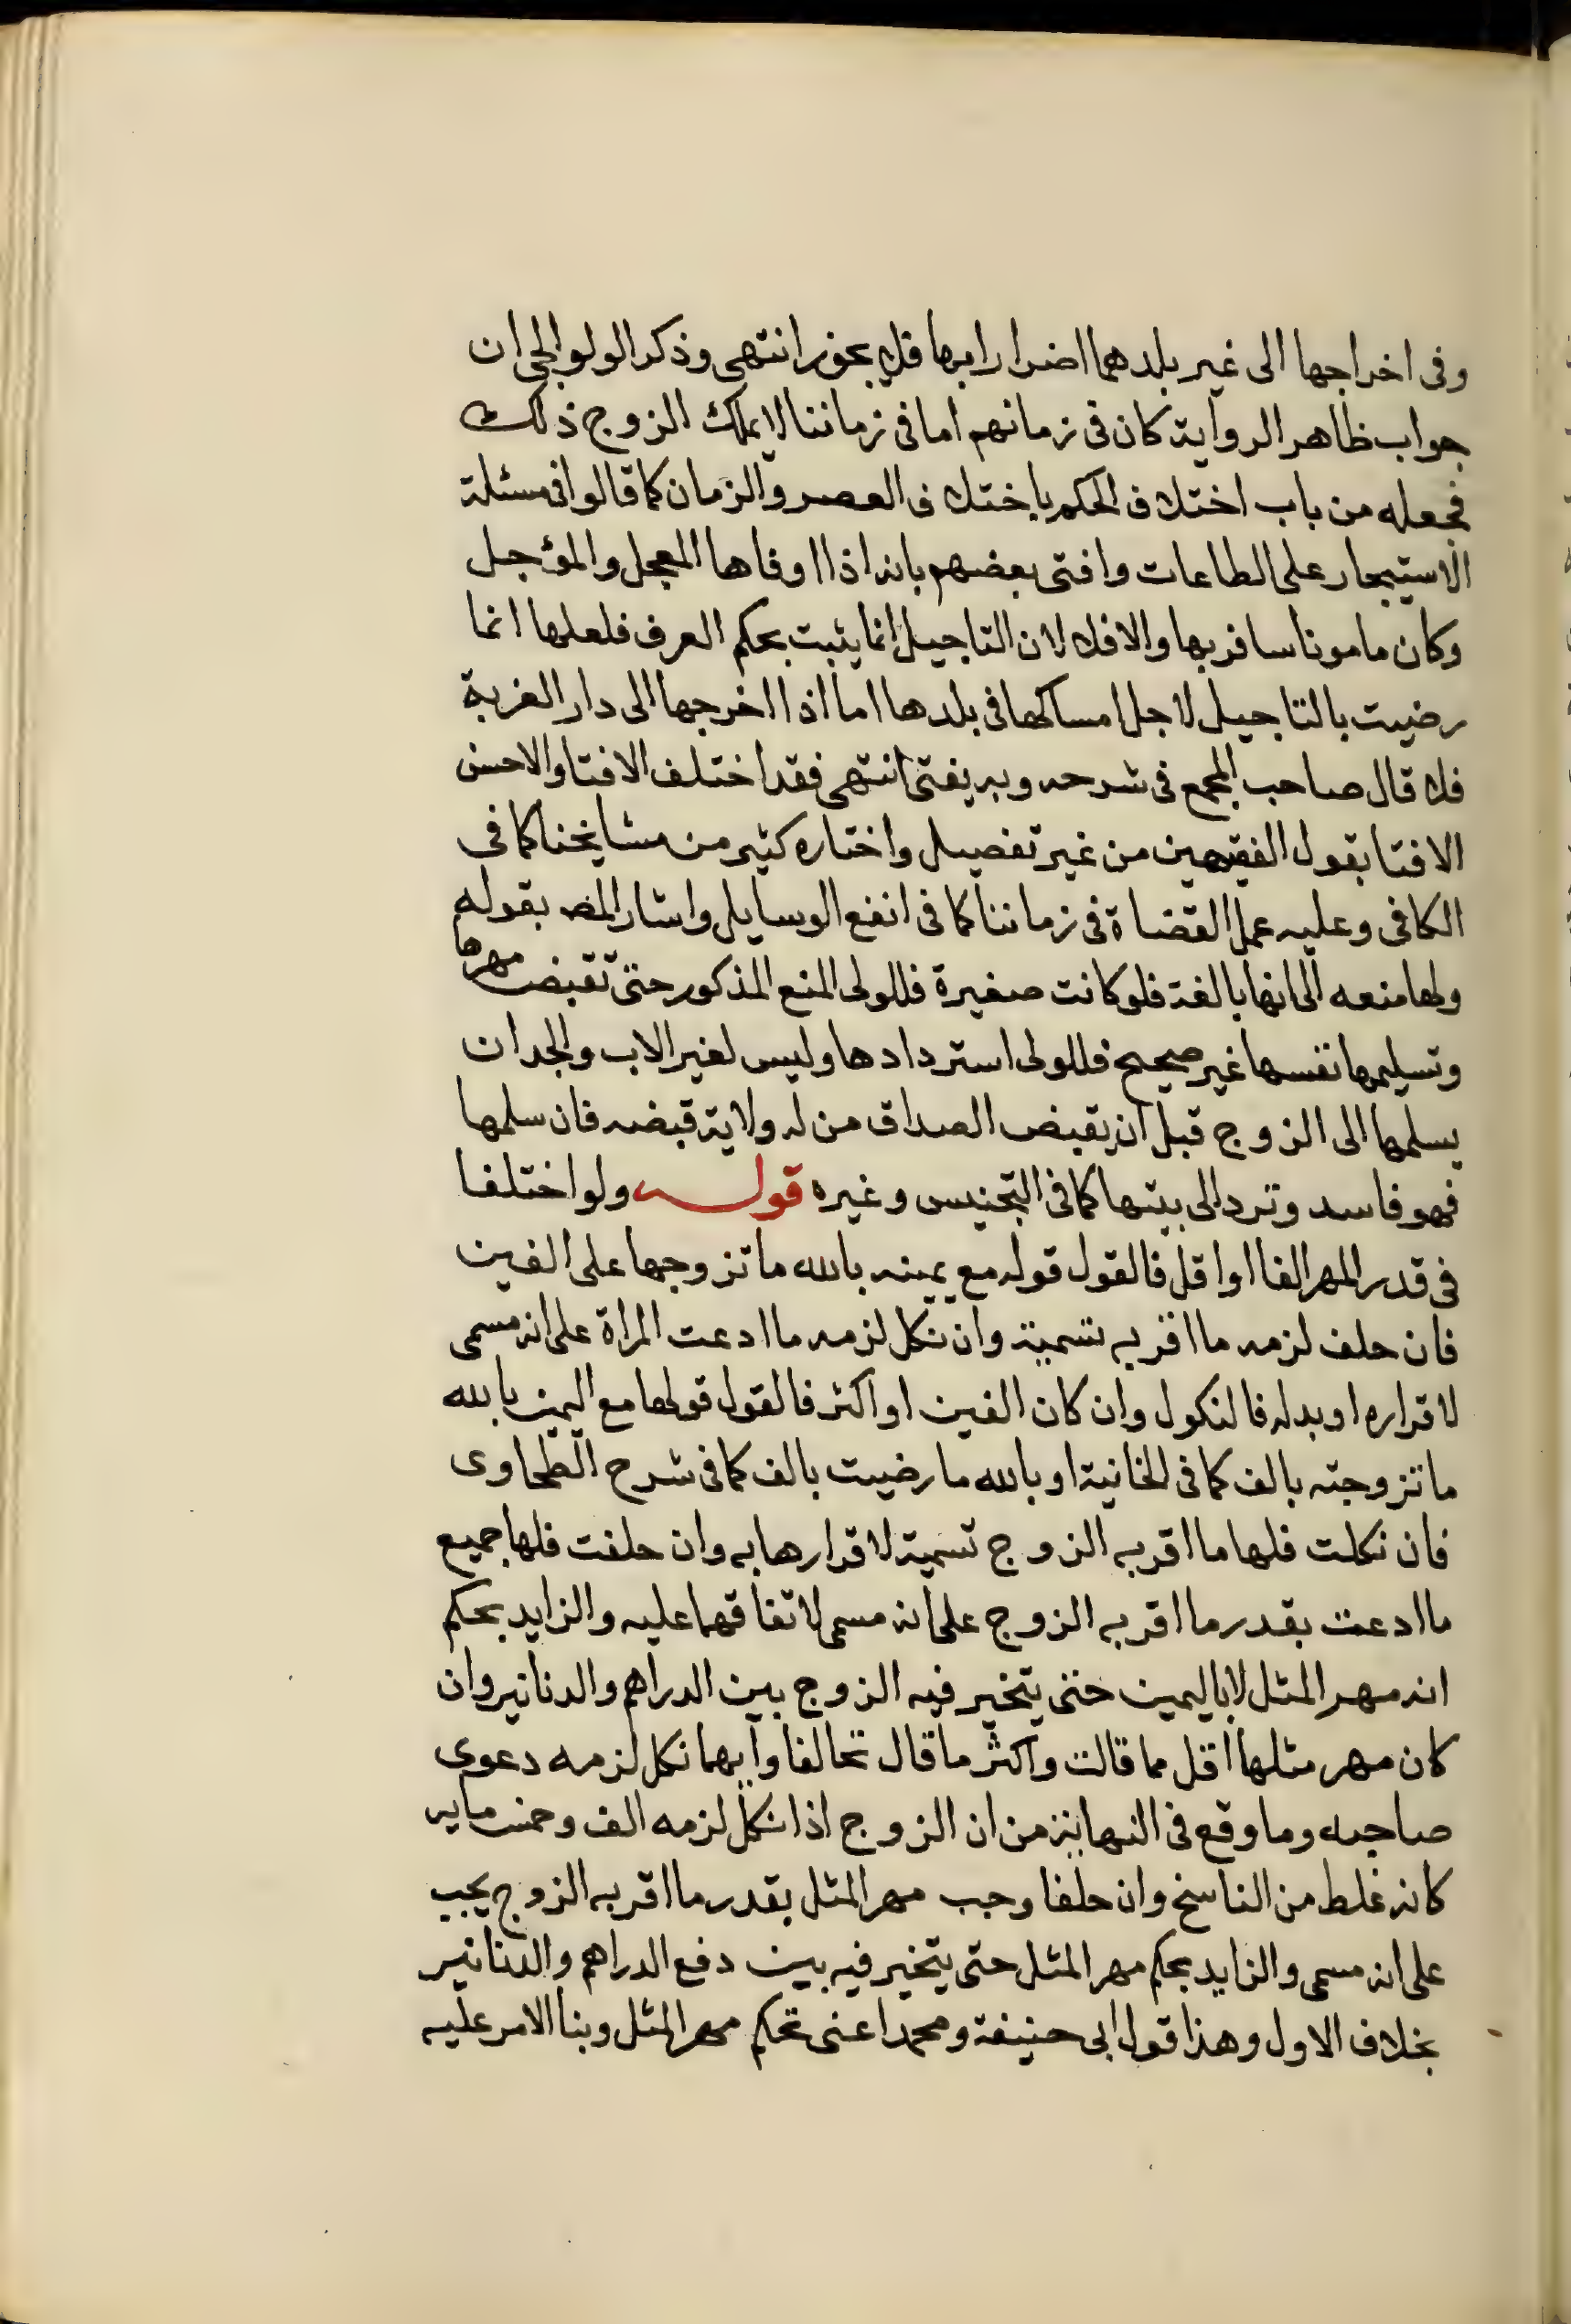 وفى اخراجها الى غير بلدهما اضرارا بها فلا يجوز انتهى وذكر الولوالجى ان
جواب ظاهر الرواية كان فى زمانهم اما فى زماننا لا يملك الزوج ذلك
فجعله من باب اختلاف الحكم باختلاف العصر والزمان كما قالوا فى مسئلة
الاستيجار على الطاعات وافتى بعضهم بانه اذا اوفاها المعجل والمؤجل
وكان مامونا سافر بها والا فلا لان التاجيل انما يثبت بحكم العرف فلعلها انما
رضيت بالتاجيل لاجل امساكها فى بلدها اما اذا اخرجها الى دار الغربة
فلا قال صاحب المجمع فى شرحه وبه يفتى انتهى فقد اختلف الافتا والاحسن
الافتا بقول الفقيهين من غير تفصيل واختاره كثير من مشايخنا كما فى
الكافى وعليه عمل القضاة فى زماننا كما فى انفع الوسايل واشار المص بقوله
ولها منعه الى انها بالغة فلو كانت صغيرة فللولى المنع المذكور حتى تقبض مهرها
وتسليمها نفسها غير صحيح فللولى استردادها وليس لغير الاب والجد ان
يسلمها الى الزوج قبل ان يقبض الصداق من له ولاية قبضه فان سلمها
فهو فاسد وترد الى بيتها كما فى التجنيس وغيره قوله ولو اختلفا
فى قدر المهر الفا او اقل فالقول قوله مع يمينه بالله ما تزوجها على الفين
فان حلف لزمه ما اقر به تسمية وان نكل لزمه ما ادعت المراة على انه مسمى
لاقراره او بدله فالنكول وان كان الفين او اكثر فالقول قولها مع اليمين بالله
ما تزوجته بالف كما فى الخانية او بالله ما رضيت بالف كما فى شرح الطحاوى
فان نكلت فلها ما اقر به الزوج تسمية لاقرارها به وان حلفت فلها جميع
ما ادعت بقدر ما اقر به الزوج على انه مسمى لاتفاقهما عليه والزايد بحكم
انه مهر المثل لا باليمين حتى يتخير فيه الزوج بين الدراهم والدنانير وان
كان مهر مثلها اقل مما قالت واكثر ما قال تحالفا وايهما نكل لزمه دعوى
صاحبه وما وقع فى النهاية من ان الزوج اذا نكل لزمه الف وخمس مايه
كانه غلط من الناسخ وان حلفا وجب مهر المثل بقدر ما اقر به الزوج يجب
على انه مسمى والزايد بحكم مهر المثل حتى يتخير فيه بين دفع الدراهم والدنانير
بخلاف الاول وهذا قول ابى حنيفة ومحمد اعنى تحكم مهر المثل وبنا الامر عليه